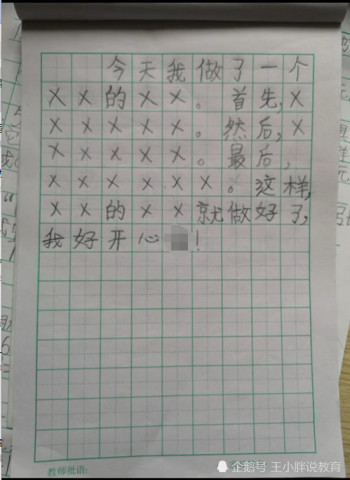 今天我做了一个
××的××。首先,×
×××××。然后,×
×××××。最后,
××××××。这样,
××的××就做好了,
我好开心!
教师批语:
企鹅号 王小胖说教育